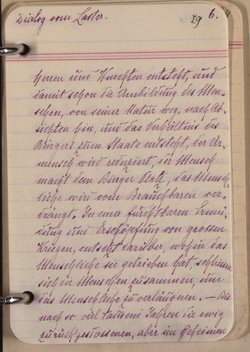 Dialog vom Laster.
29 6.
Herren und Knechten entsteht, und
damit schon die Ausbildung des Men-
schen, von seiner Natur weg, nach Ab-
sichten hin, und das Verhältnis des
Bürgers zum Staate entsteht, der
Mensch wird reduziert, der Mensch
macht dem Bürger Platz, das Mensch-
liche wird vom Brauchbaren ver-
drängt. In einer furchtbaren
und Erschöpfung von grossen
Kriegen, entsetzt darüber, wohin das
Menschliche sie getrieben hat, 
sich die Menschen zusammen, um
das Menschliche zu verlängnen. — das
nach so viel tausend Jahren
zurückgestossen, aber im Geheimen